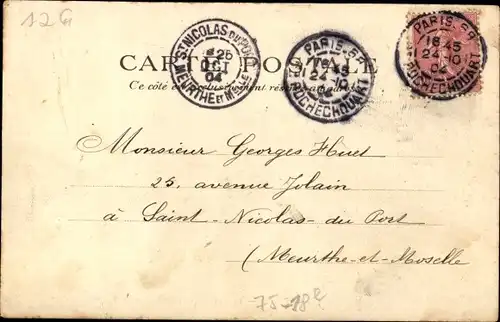 12 G
CARTE POSTALE
Ce côté est exclusivement réservé à l'adresse
ST NICOLAS DU PORT
25
OCT
04
MEURTHE ET M LLE
PARIS-59
18 45
24 10
04
R. ROCHECHOUART
PARIS-59
18 45
24 10
04
R. ROCHECHOUART
Monsieur Georges Huet
25, avenue Jolain
à Saint-Nicolas-du Port
(Meurthe-et-Moselle
75-18e